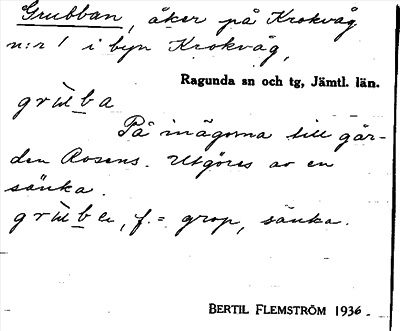 Grubban, åker på Krokvåg
n:r 1 i byn Krokvåg,
Ragunda sn och tg, Jämtl. län.
På inägorna till går-
den Rosens. Utgöres av en
sänka.
f. = grop, sänka.
BERTIL FLEMSTRÖM 1936.